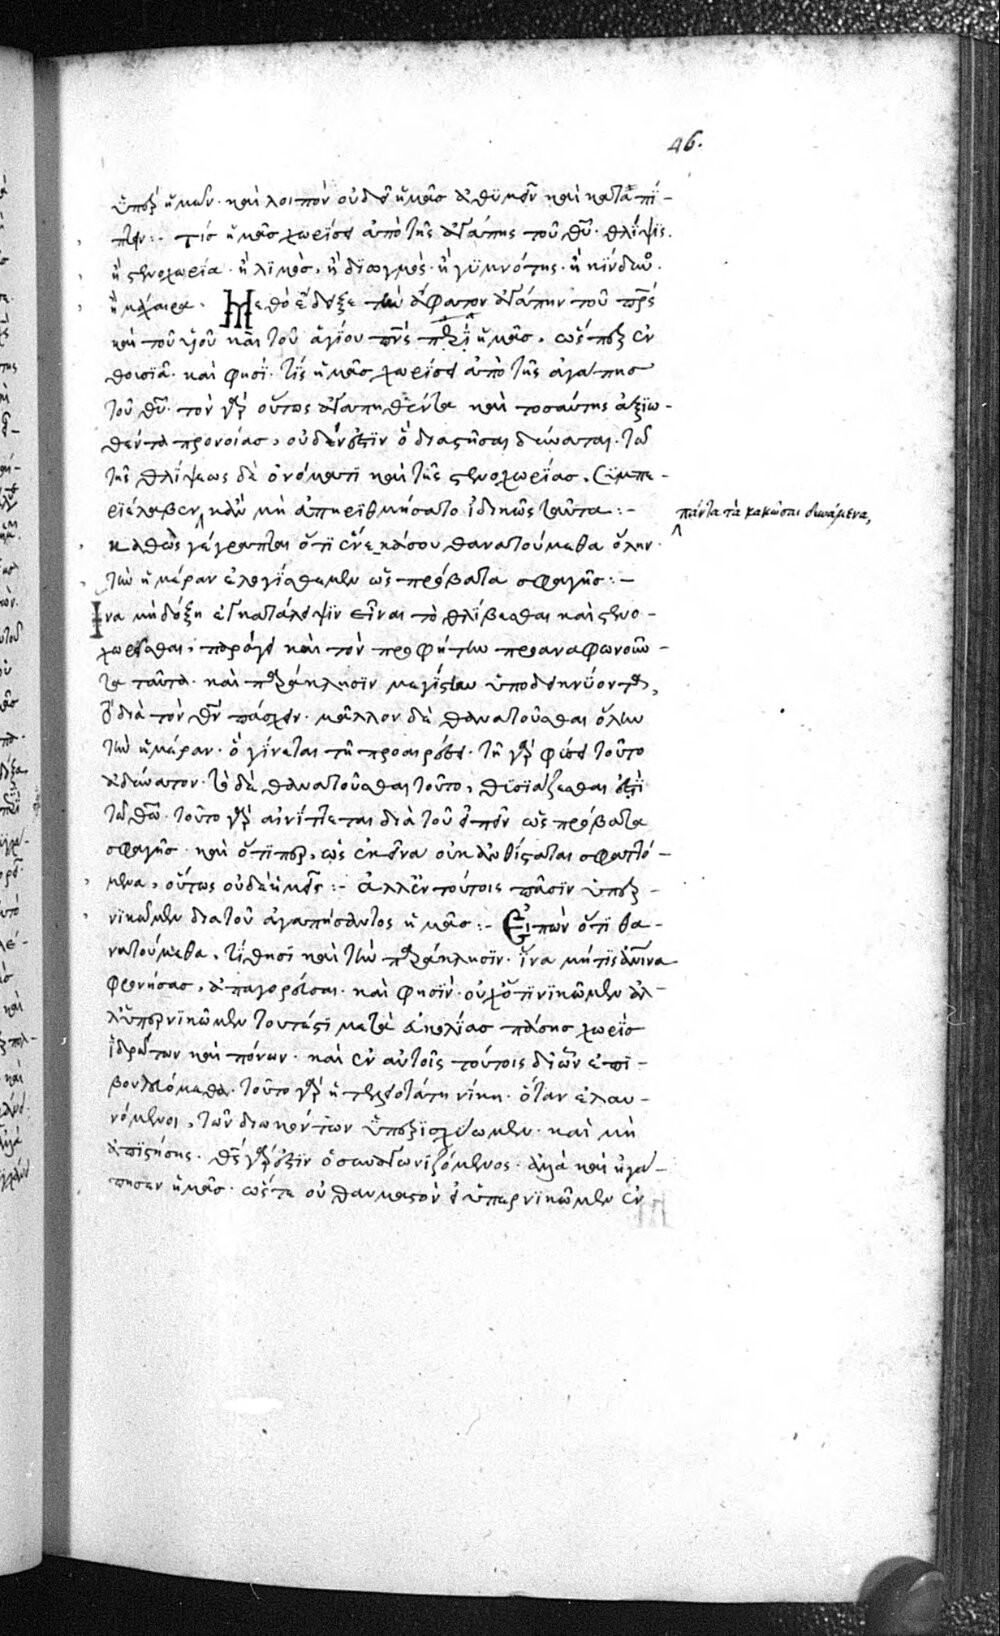 46.
ὑπὲρ ἡμῶν· καὶ λοιπὸν οὐ δεῖ ἡμᾶς ἀθυμεῖν καὶ καταπί-
πτειν :· τίς ἡμᾶς χωρίσει ἀπὸ τῆς ἀγάπης τοῦ θῦ· θλίψις.
ἢ στενοχωρία· ἢ λιμὸς, ἢ διωγμὸς· ἢ γυμνότης· ἢ κίνδυνος.
ἢ μάχαιρα. Μετὰ ἔδειξε τὴν ἄφατον ἀγάπην τοῦ πρς
καὶ τοῦ υἱοῦ καὶ τοῦ ἁγίου πνς περὶ ἡμᾶς, ὥσπερ ἐν
θουσιᾷ· καὶ φησί· τίς ἡμᾶς χωρίσει ἀπὸ τῆς ἀγάπης
τοῦ θῦ· τὸν γὰρ οὕτως ἀγαπηθέντα καὶ τοσαύτης ἀξιω-
θέντα προνοίας, οὐδέν ἐστιν ὃ διαστῆσαι δύναται. τῷ
τῆς θλίψεως δὲ ὀνόματι καὶ τῆς στενοχωρίας, συμπε-
ριέλαβεν, κἂν μὴ ἀπηριθμήσατο ἰδικῶς ταῦτα :-
πάντα τὰ κακῶσαι δυνάμενα,
καθὼς γέγραπται ὅτι ἕνεκά σου θανατούμεθα ὅλην·
τὴν ἡμέραν ἐλογίσθημεν ὡς πρόβατα σφαγῆς :-
Ἵνα μὴ δόξῃ ἐγκατάλειψιν εἶναι τὸ θλίβεσθαι καὶ στενο-
χωρεῖσθαι, παράγει καὶ τὸν προφήτην προαναφωνοῦν-
τα ταῦτα· καὶ παράκλησιν μεγίστην ὑποδεικνύοντα,
τὸ διὰ τὸν θν πάσχειν· μᾶλλον δὲ θανατοῦσθαι ὅλην
τὴν ἡμέραν· ὃ γίνεται τῇ προαιρέσει· τῇ γὰρ φύσει τοῦτο
ἀδύνατον· τὸ δὲ θανατοῦσθαι τοῦτο, θυσιάζεσθαι ἐστὶ
τῷ θῶ· τοῦτο γὰρ αἰνίττεται διὰ τοῦ εἰπεῖν ὡς πρόβατα
σφαγῆς· καὶ ὅτιπερ, ὡς ἐκεῖνα οὐκ ἀνθίσταται σφαττό-
μενα, οὕτως οὐδὲ ἡμεῖς :- ἀλλ' ἐν τούτοις πᾶσιν ὑπερ-
νικῶμεν διὰ τοῦ ἀγαπήσαντος ἡμᾶς :- Εἰπὼν ὅτι θα-
νατούμεθα, τίθησι καὶ τὴν παράκλησιν· ἵνα μή τις
φρονήσας, ἀπαγορεύσαι· καὶ φησὶν· οὐχ ὅτι νικῶμεν ἀλ-
λ' ὑπερνικῶμεν τουτέστι μετὰ εὐκολίας πάσης χωρὶς
ἱδρώτων καὶ πόνων· καὶ ἐν αὐτοῖς τούτοις δι' ὧν ἐπι-
βουλευόμεθα· τοῦτο γὰρ ἡ νίκη· ὅταν ἐλαυ-
νόμενοι, τῶν διωκόντων ὑπερισχύωμεν· καὶ μὴ
ἀπιστήσῃς· θς γάρ ἐστιν ὁ συναγωνιζόμενος· ἀλλὰ καὶ ἠγά-
πησεν ἡμᾶς· ὥστε οὐ θαυμαστὸν εἰ ὑπερνικῶμεν ἐν